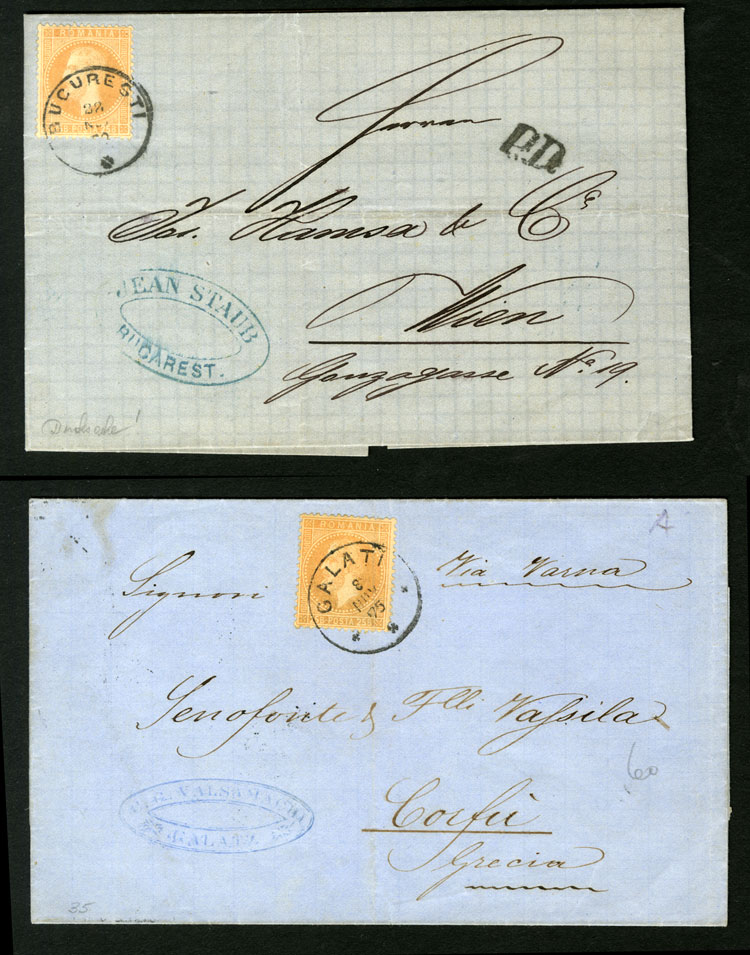 ROMANIA
BUCURESTI
28
Herren
P.D.
Jos. Hamsa & Cᵒ
Wien
Gonzagasse Nº 19.
JEAN STAUB
BUCAREST.
ROMANIA
POSTA 25
GALATI
8
75
A
Via Varna
Signori
Senofonte & Flli Vassila
60
Corfù
Grecia
VALSAMACHI
GALATZ
35